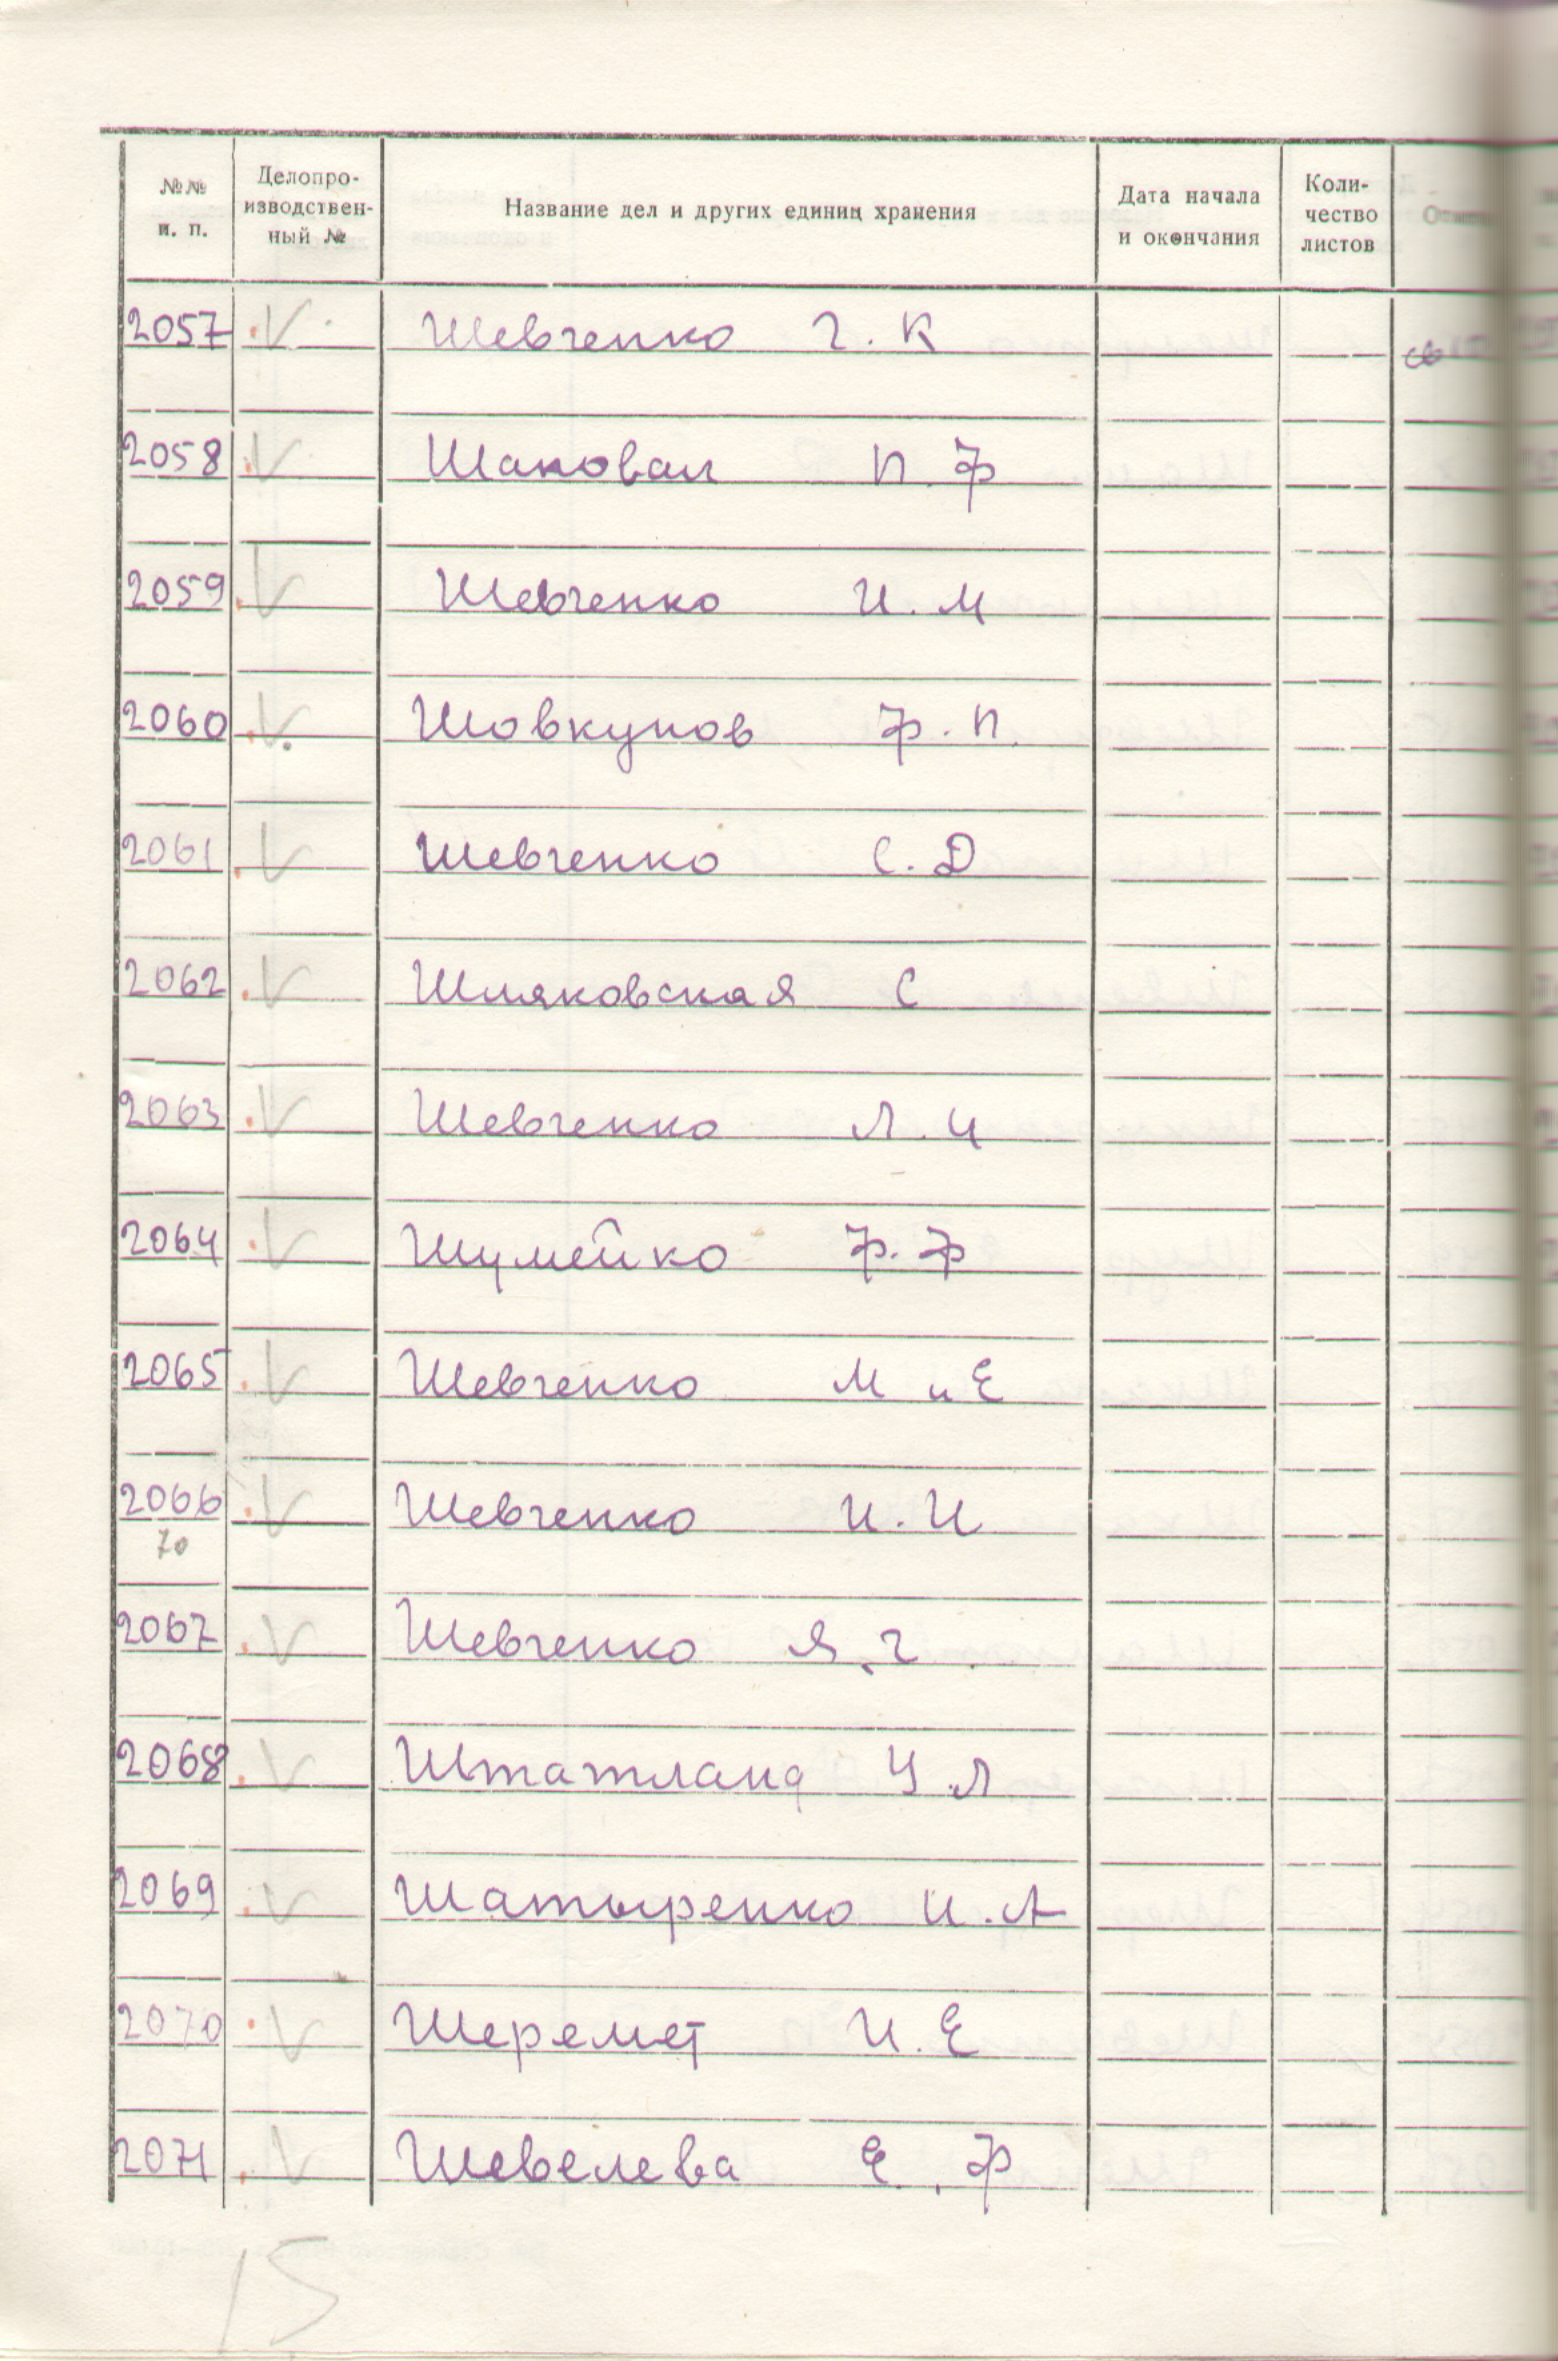 №№ п. п. Делопро-изводствен-ный № Название дел и других единиц хранения Дата начала и окончания Коли-чество листов
2057 V Шевченко Г. К
2058 V Шаповал П. Ф
2059 V Шевченко И. М
2060 V Шовкупов Ф. П.
2061 V Шевченко С. Д
2062 V Шляховская С
2063 V Шевченко Л. И
2064 V Шумейко Ф. Ф
2065 V Шевченко М и Е
2066 V Шевченко И. И
70
2067 V Шевченко Я. Г
2068 V Штатланд У. Л
2069 V Шатыренко И. А
2070 V Шеремет И. Е
2071 V Шевелева Е. Ф
15